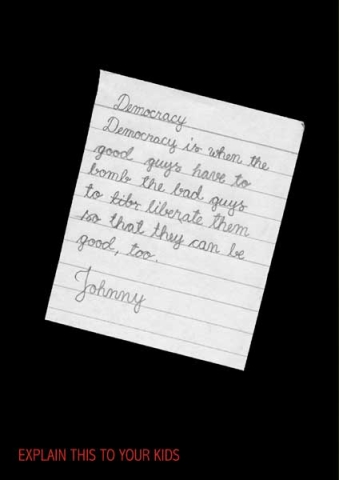 Democracy
Democracy is when the
good guys have to
bomb the bad guys
to libr liberate them
so that they can be
good, too.
Johnny
EXPLAIN THIS TO YOUR KIDS